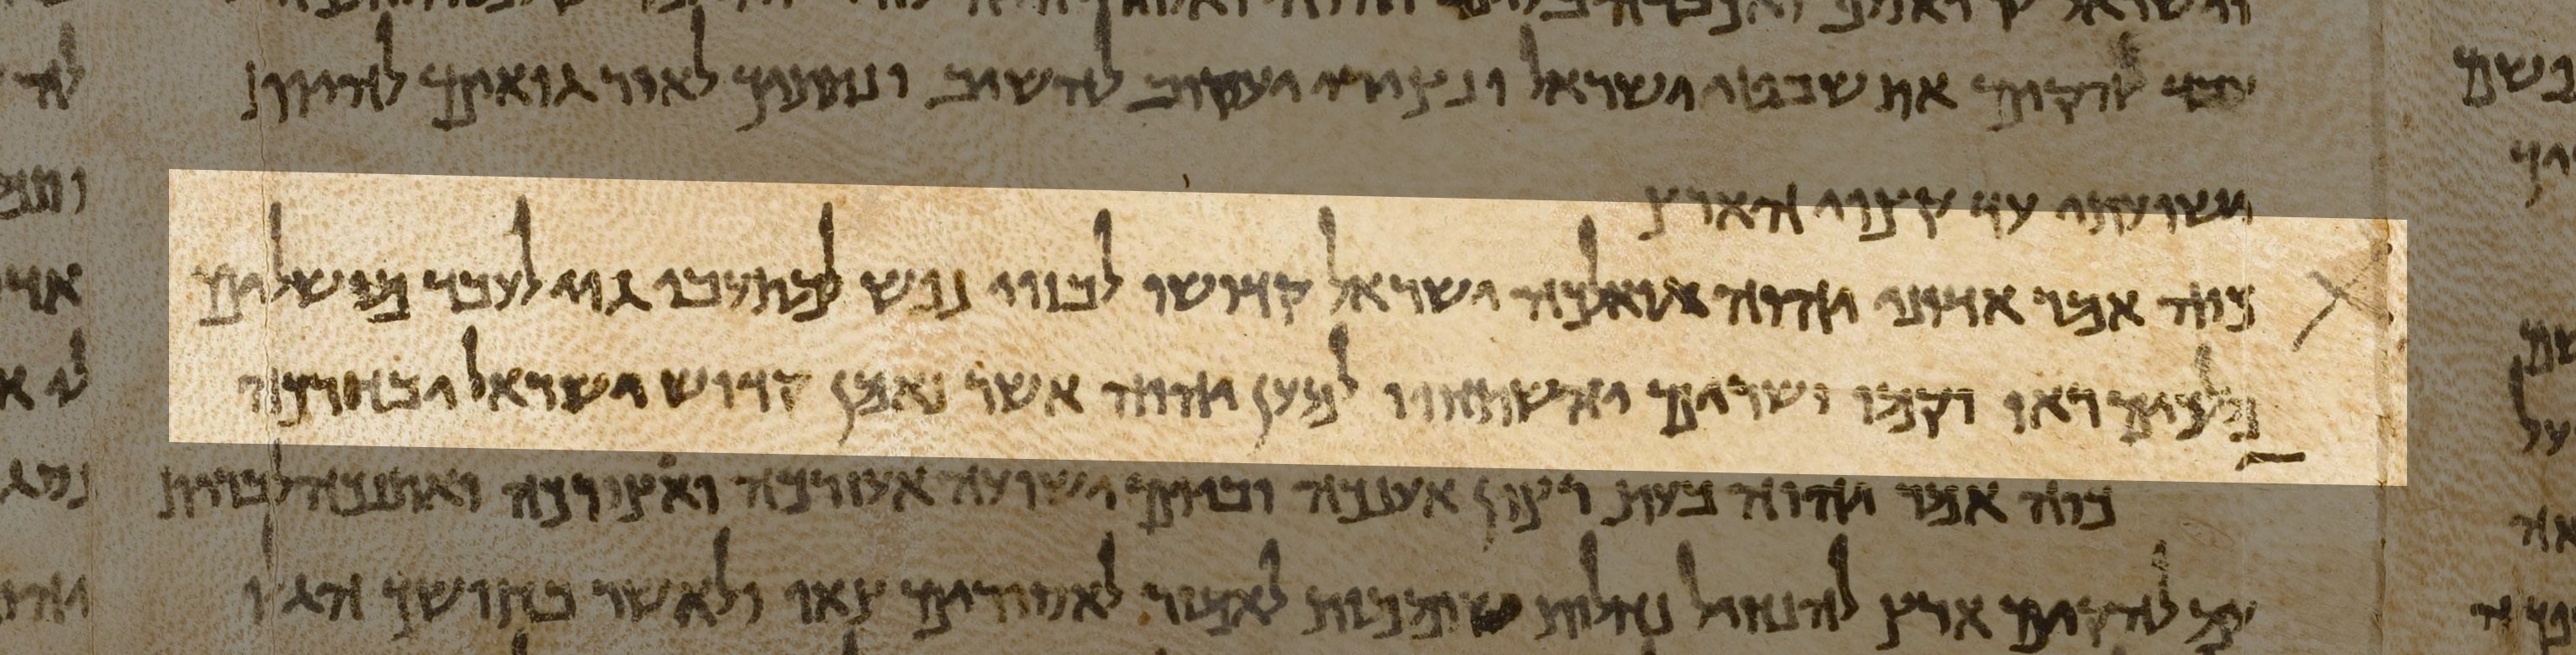 עבד להקים את שבטי ישראל ונצירי יעקוב להשיב ונתתיך לאור גואים להיות
ישועתי עד קצוי הארץ
כוה אמר אדוני יהוה גואלכה ישראל קדושו לבזוי נפש למתעבי גוי לעבד מושלים
מלכים ראו וקמו ושרים והשתחוו למען יהוה אשר נאמן קדוש ישראל יבחרכה
כוה אמר יהוה בעת רצון אעננכה וביום ישועה אעזרכה ואצורכה ואתננכה לברית
עם להקים ארץ להנחיל נחלות שוממות לאמור לאסורים צאו ולאשר בחושך הגלו